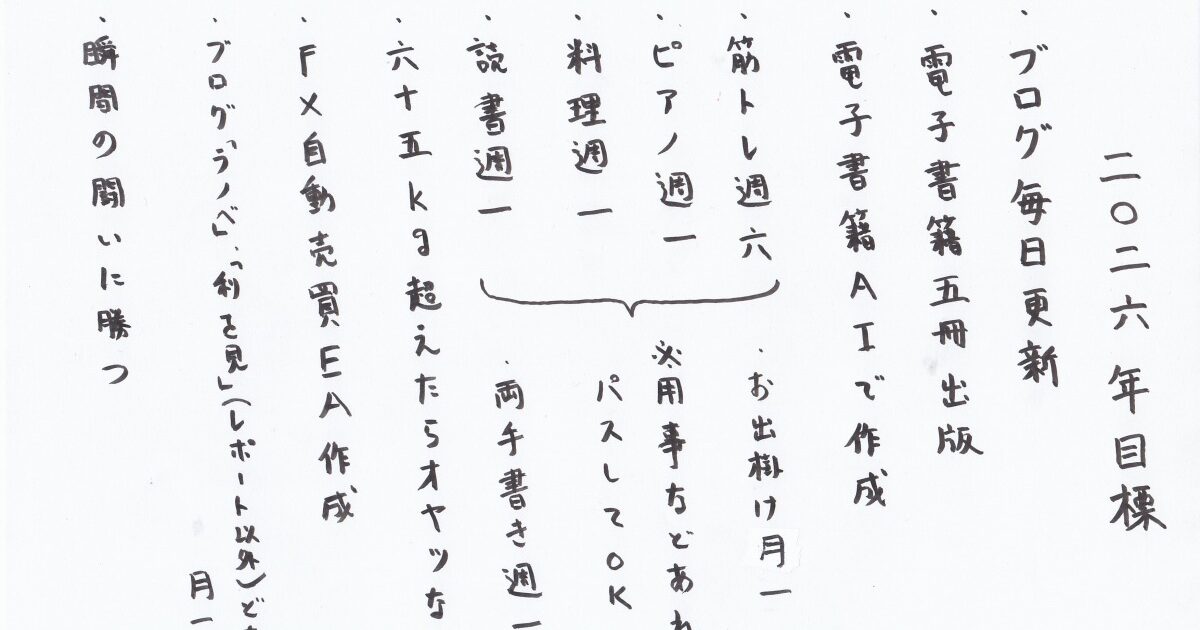 二〇二六年目標
・ブログ毎日更新
・電子書籍五冊出版
・電子書籍AIで作成
・筋トレ週六
・お出掛け月一
・ピアノ週一
※用事などあれ
・料理週一
パスしてOK
・読書週一
・両手書き週一
・六十五kg超えたらオヤツな
・FX自動売買EA作成
・ブログ「ラノベ」、「利を見」(レポート以外)ど
月一
・瞬間の闘いに勝つ